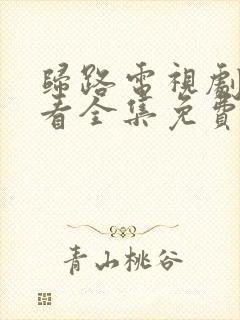 歸路電視劇
看全集免費
青山桃谷